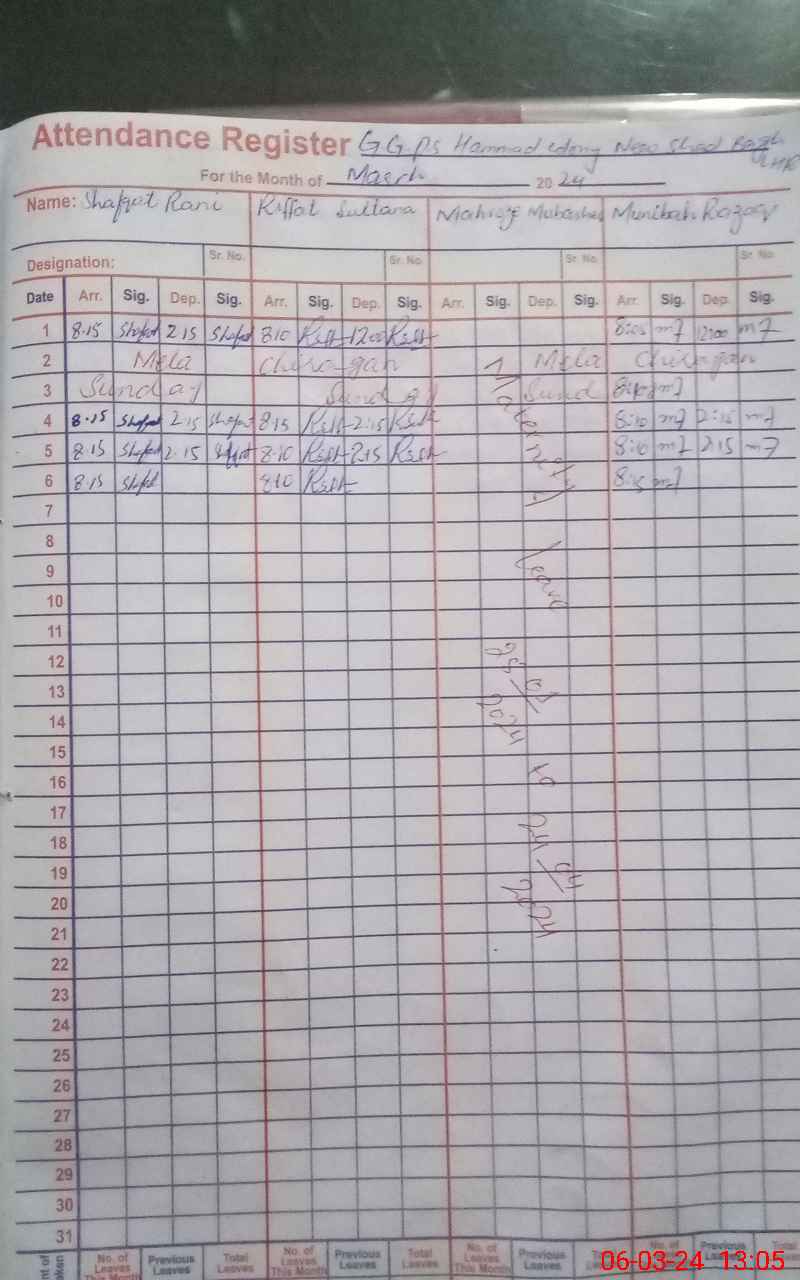 Attendance Register G G.PS Hammad colony New Shad Bagh LHR
For the Month of March 2024
Name: Shafqat Rani Riffat Sultana Munibah
Designation: Sr. No. Sr. No. Sr. No. Sr. No.
Date Arr. Sig. Dep. Sig. Arr. Sig. Dep. Sig. Arr. Sig. Dep. Sig. Arr. Sig. Dep. Sig.
1 8.15 Shafqat 2.15 Shafqat 8.10 Riffat 12.00 Riffat 8:05 mf 12:00 mf
2 Mela Chiragan Mela Chiragan
3 Sunday Sunday Sund mf
4 8.15 Shafqat 2.15 Shafqat 8.15 Riffat 2.15 Riffat 8:10 mf 2:15 mf
5 8.15 Shafqat 2.15 Shafqat 8.10 Riffat 2.15 Riffat 8:10 mf 2:15 mf
6 8.15 Shafqat 8.10 Riffat 8:15 mf
Maternity leave
2024 to 24/04/2024
7
8
9
10
11
12
13
14
15
16
17
18
19
20
21
22
23
24
25
26
27
28
29
30
31
No. of Leaves This Month Previous Leaves Total Leaves No. of Leaves This Month Previous Leaves Total Leaves No. of Leaves This Month Previous Leaves No. of Previous Leaves Total
06-03-24 13:05